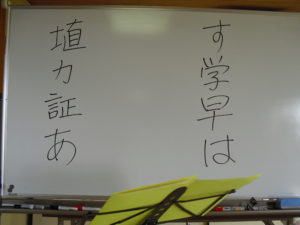 す学早は
埴カ証あ